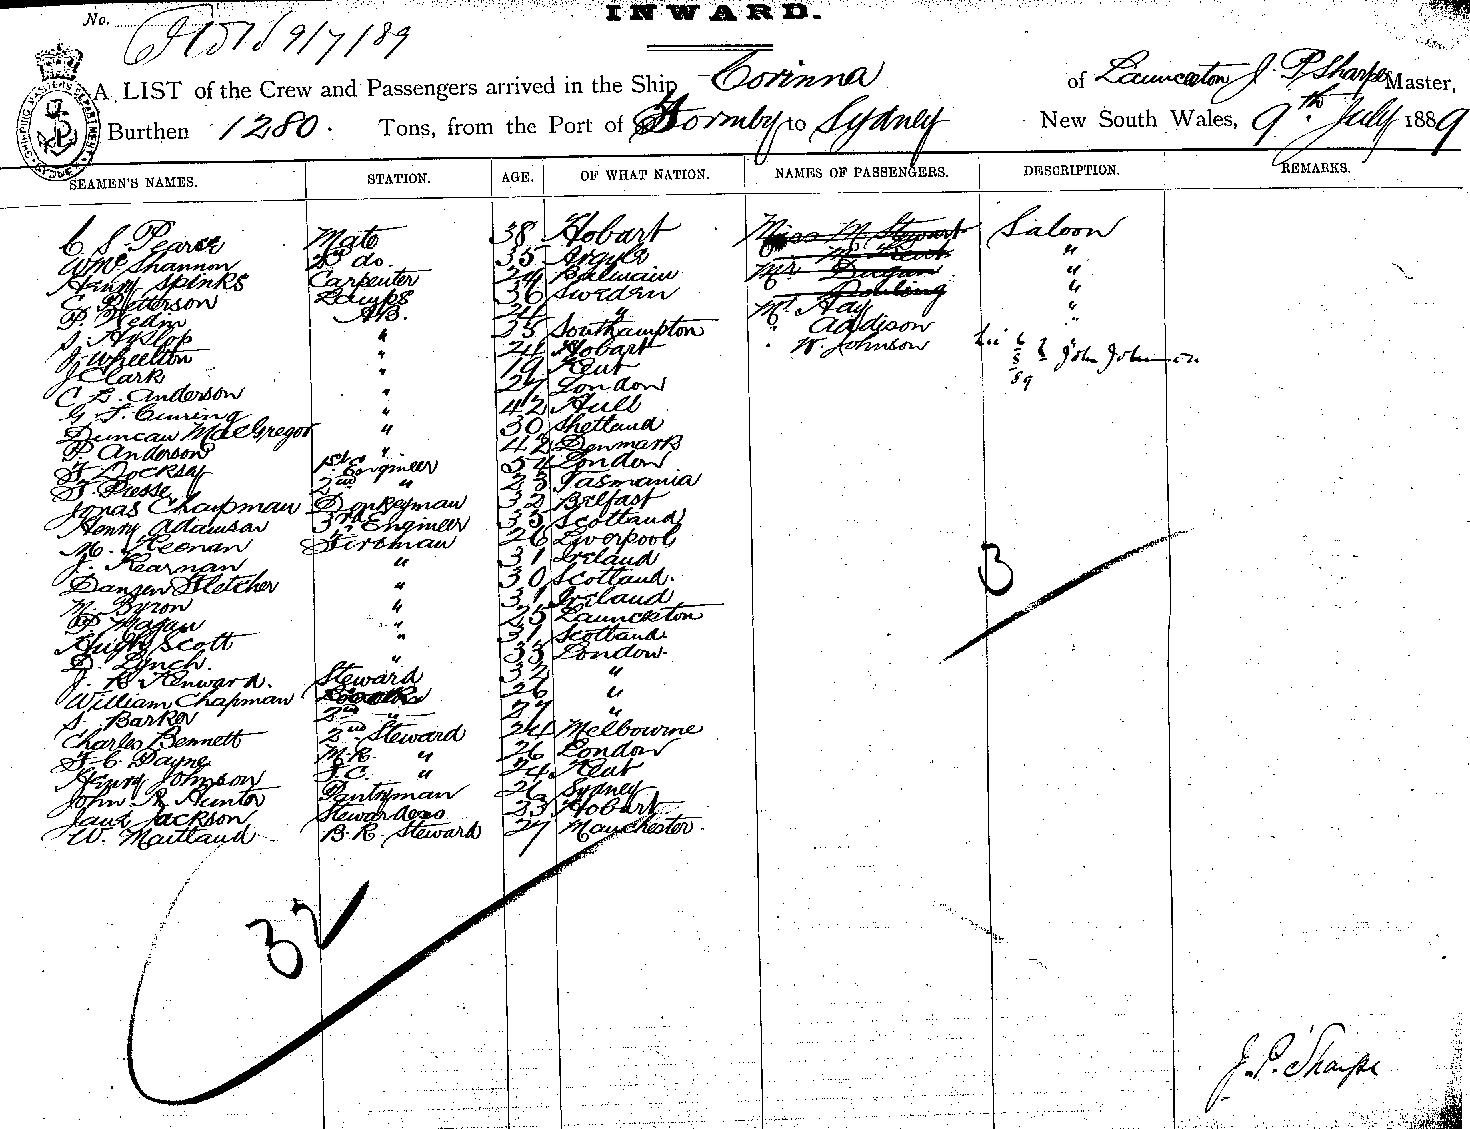 INWARD.
No.
9/7/89
A LIST of the Crew and Passengers arrived in the Ship Corinna of Launceston J. P. Sharpe Master,
Burthen 1280. Tons, from the Port of Formby to Sydney New South Wales, 9th July 1889
SEAMEN'S NAMES. STATION. AGE. OF WHAT NATION. NAMES OF PASSENGERS. DESCRIPTION. REMARKS.
C S. Pearce Mate 38 Hobart Miss M Stewart Saloon
W Mc Shannon 2d do. 35 Argyle "
Henry Spinks Carpenter 24 Balmain Mr Dugan "
C. Petterson Lamps 36 Sweden "
P. Nedm AB. 24 " Mr Hay "
S. Hyslop " 35 Southampton " Addison "
J. Wheelton " 24 Hobart " W. Johnson
J Clark " 19 Kent John Johnson
C. L. Anderson " 27 London
G. T. " 42 Hull
Duncan MacGregor " 30 Shetland
P. Anderson " 42 Denmark
T Docksey 1st Engineer 54 London
T. Presse 2nd " 23 Tasmania
Jonas Chapman Donkeyman 32 Belfast
Henry Adamson 3rd Engineer 33 Scotland
M. Keenan Fireman 26 Liverpool
J. Kearnan " 31 Ireland
Fletcher " 30 Scotland.
M. Byron " 31 Ireland
P Magan " 25 Launceston
Hugh Scott " 31 Scotland
D. Lynch. " 33 London.
J. R. Kenward. Steward 32 "
William Chapman 26 "
S. Barker 2nd " 27 "
Charles Bennett 2nd Steward 24 Melbourne
F. C. Payne M.R. " 26 London
Henry Johnson F.C. " 24 Kent
John R Hunter Pantryman 26 Sydney
Jane Jackson Stewardess 23 Hobart
W. Maitland B.R. Steward 27 Manchester.
3
32
J. P. Sharpe